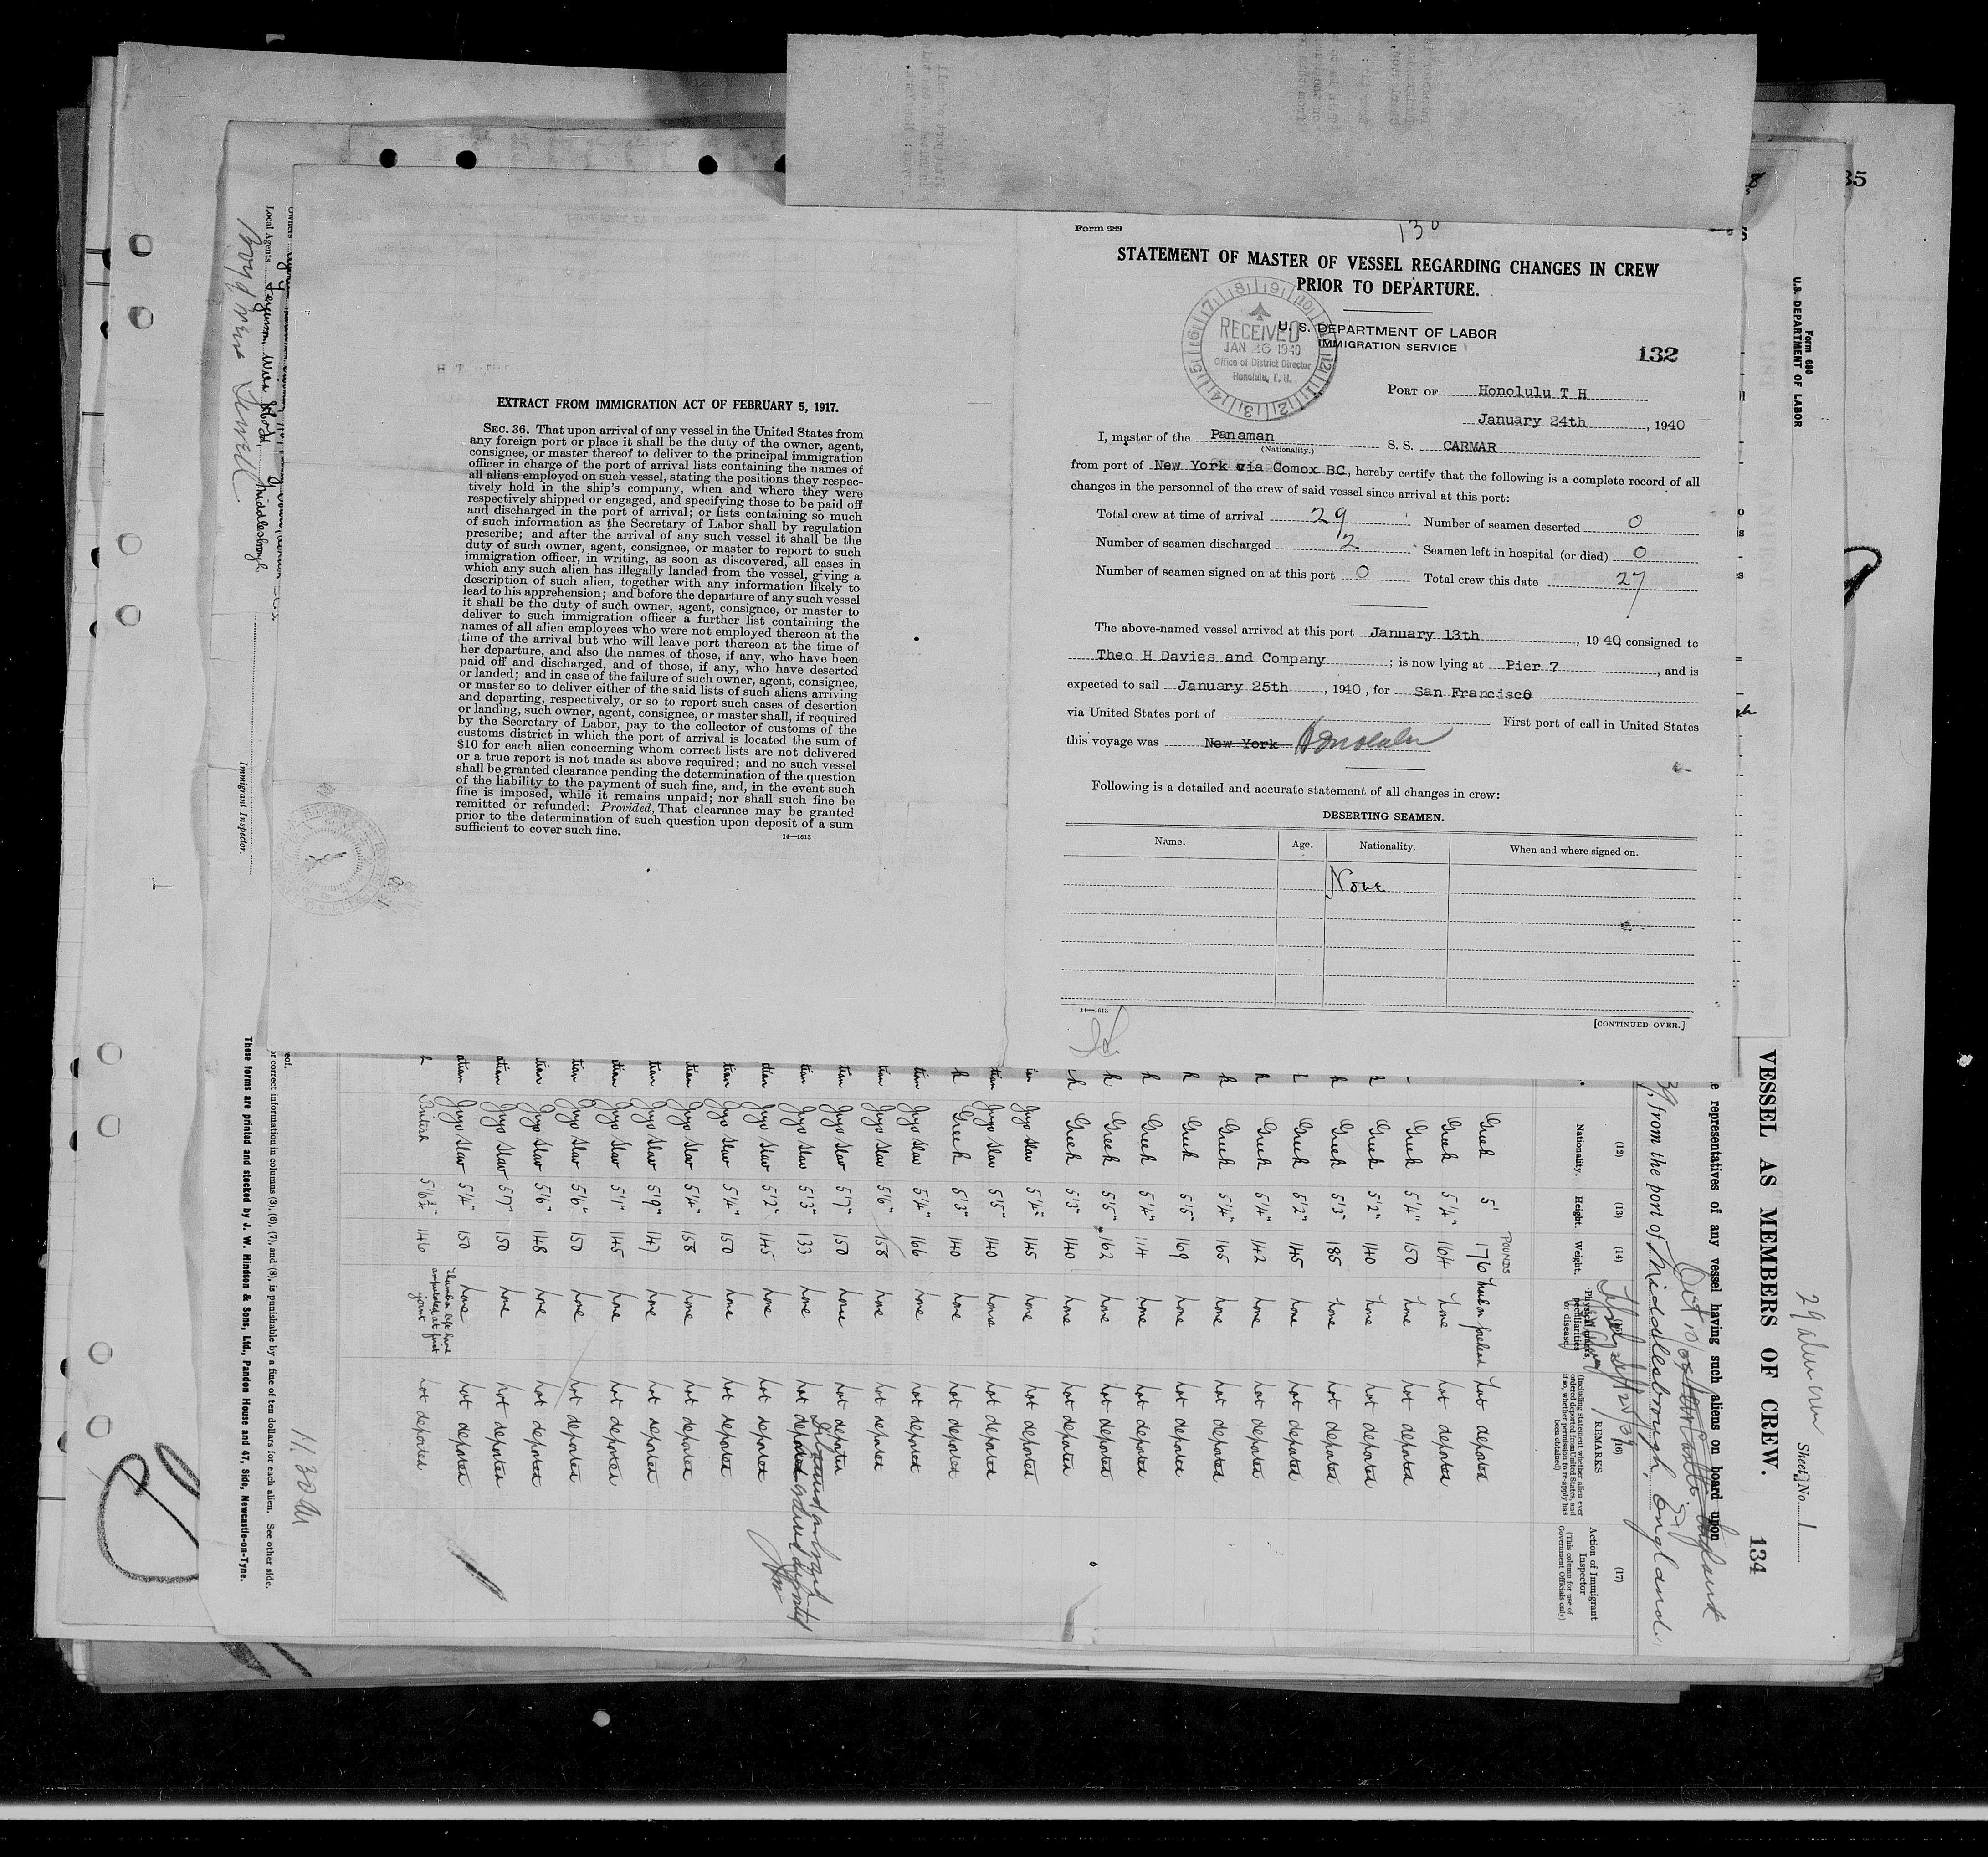 Form 689
130
STATEMENT OF MASTER OF VESSEL REGARDING CHANGES IN CREW
PRIOR TO DEPARTURE.
U. S. DEPARTMENT OF LABOR
IMMIGRATION SERVICE
132
RECEIVED
JAN 26 1940
Office of District Director
Honolulu, T. H.
PORT OF Honolulu T H
January 24th, 1940
I, master of the Panaman S. S. CARMAR
(Nationality.)
from port of New York via Comox BC, hereby certify that the following is a complete record of all
changes in the personnel of the crew of said vessel since arrival at this port:
Total crew at time of arrival 29 Number of seamen deserted 0
Number of seamen discharged 2 Seamen left in hospital (or died) 0
Number of seamen signed on at this port 0 Total crew this date 27
The above-named vessel arrived at this port January 13th, 1940, consigned to
Theo H Davies and Company; is now lying at Pier 7, and is
expected to sail January 25th, 1940, for San Francisco
via United States port of First port of call in United States
this voyage was New York Honolulu
Following is a detailed and accurate statement of all changes in crew:
DESERTING SEAMEN.
Name. Age. Nationality. When and where signed on.
None
14—1613
[CONTINUED OVER.]
EXTRACT FROM IMMIGRATION ACT OF FEBRUARY 5, 1917.
SEC. 36. That upon arrival of any vessel in the United States from
any foreign port or place it shall be the duty of the owner, agent,
consignee, or master thereof to deliver to the principal immigration
officer in charge of the port of arrival lists containing the names of
all aliens employed on such vessel, stating the positions they respec-
tively hold in the ship's company, when and where they were
respectively shipped or engaged, and specifying those to be paid off
and discharged in the port of arrival; or lists containing so much
of such information as the Secretary of Labor shall by regulation
prescribe; and after the arrival of any such vessel it shall be the
duty of such owner, agent, consignee, or master to report to such
immigration officer, in writing, as soon as discovered, all cases in
which any such alien has illegally landed from the vessel, giving a
description of such alien, together with any information likely to
lead to his apprehension; and before the departure of any such vessel
it shall be the duty of such owner, agent, consignee, or master to
deliver to such immigration officer a further list containing the
names of all alien employees who were not employed thereon at the
time of the arrival but who will leave port thereon at the time of
her departure, and also the names of those, if any, who have been
paid off and discharged, and of those, if any, who have deserted
or landed; and in case of the failure of such owner, agent, consignee,
or master so to deliver either of the said lists of such aliens arriving
and departing, respectively, or so to report such cases of desertion
or landing, such owner, agent, consignee, or master shall, if required
by the Secretary of Labor, pay to the collector of customs of the
customs district in which the port of arrival is located the sum of
$10 for each alien concerning whom correct lists are not delivered
or a true report is not made as above required; and no such vessel
shall be granted clearance pending the determination of the question
of the liability to the payment of such fine, and, in the event such
fine is imposed, while it remains unpaid; nor shall such fine be
remitted or refunded: Provided, That clearance may be granted
prior to the determination of such question upon deposit of a sum
sufficient to cover such fine.
14—1613
Form 680
U.S. DEPARTMENT OF LABOR
Sheet No. 1
VESSEL AS MEMBERS OF CREW. 134
e representatives of any vessel having such aliens on board upon
from the port of Middlesbrough, England
(12) (13) (14) (16) (17)
Nationality. Height. Weight. Physical marks, peculiarities or disease
REMARKS
(Including statement whether alien ever
ordered deported from United States, and
if so, whether permission to re-apply has
been obtained)
Action of Immigrant
Inspector
(This column for use of
Government Officials only)
POUNDS
Greek 5' 176 not deported
Greek 5'4" 164 none not deported
Greek 5'4" 150 none not deported
Greek 5'2" 140 none not deported
Greek 5'3" 185 none not deported
Greek 5'2" 145 none not deported
Greek 5'4" 142 none not deported
Greek 5'4" 165 none not deported
Greek 5'5" 169 none not deported
Greek 5'4" none not deported
Greek 5'5" 162 none not deported
Greek 5'3" 140 none not deported
Jugo Slav 5'4" 145 none not deported
Jugo Slav 5'5" 140 none not deported
Greek 5'3" 140 none not deported
Jugo Slav 5'4" 166 none not deported
Jugo Slav 5'6" 158 none not deported
Jugo Slav 5'7" 150 none not deported
Jugo Slav 5'3" 133 none not deported
Jugo Slav 5'2" 145 none not deported
Jugo Slav 5'4" 150 none not deported
Jugo Slav 5'4" 158 none not deported
Jugo Slav 5'9" 147 none not deported
Jugo Slav 5'1" 145 none not deported
Jugo Slav 5'6" 150 none not deported
Jugo Slav 5'6" 148 none not deported
Jugo Slav 5'7" 150 none not deported
Jugo Slav 5'4" 150 none not deported
British 146 not deported
11.30 AM
or correct information in columns (3), (6), (7), and (8), is punishable by a fine of ten dollars for each alien. See other side.
These forms are printed and stocked by J. W. Hindson & Sons, Ltd., Pandon House and 47, Side, Newcastle-on-Tyne.
Owners
Local Agents
Middlesbrough
Immigrant Inspector.